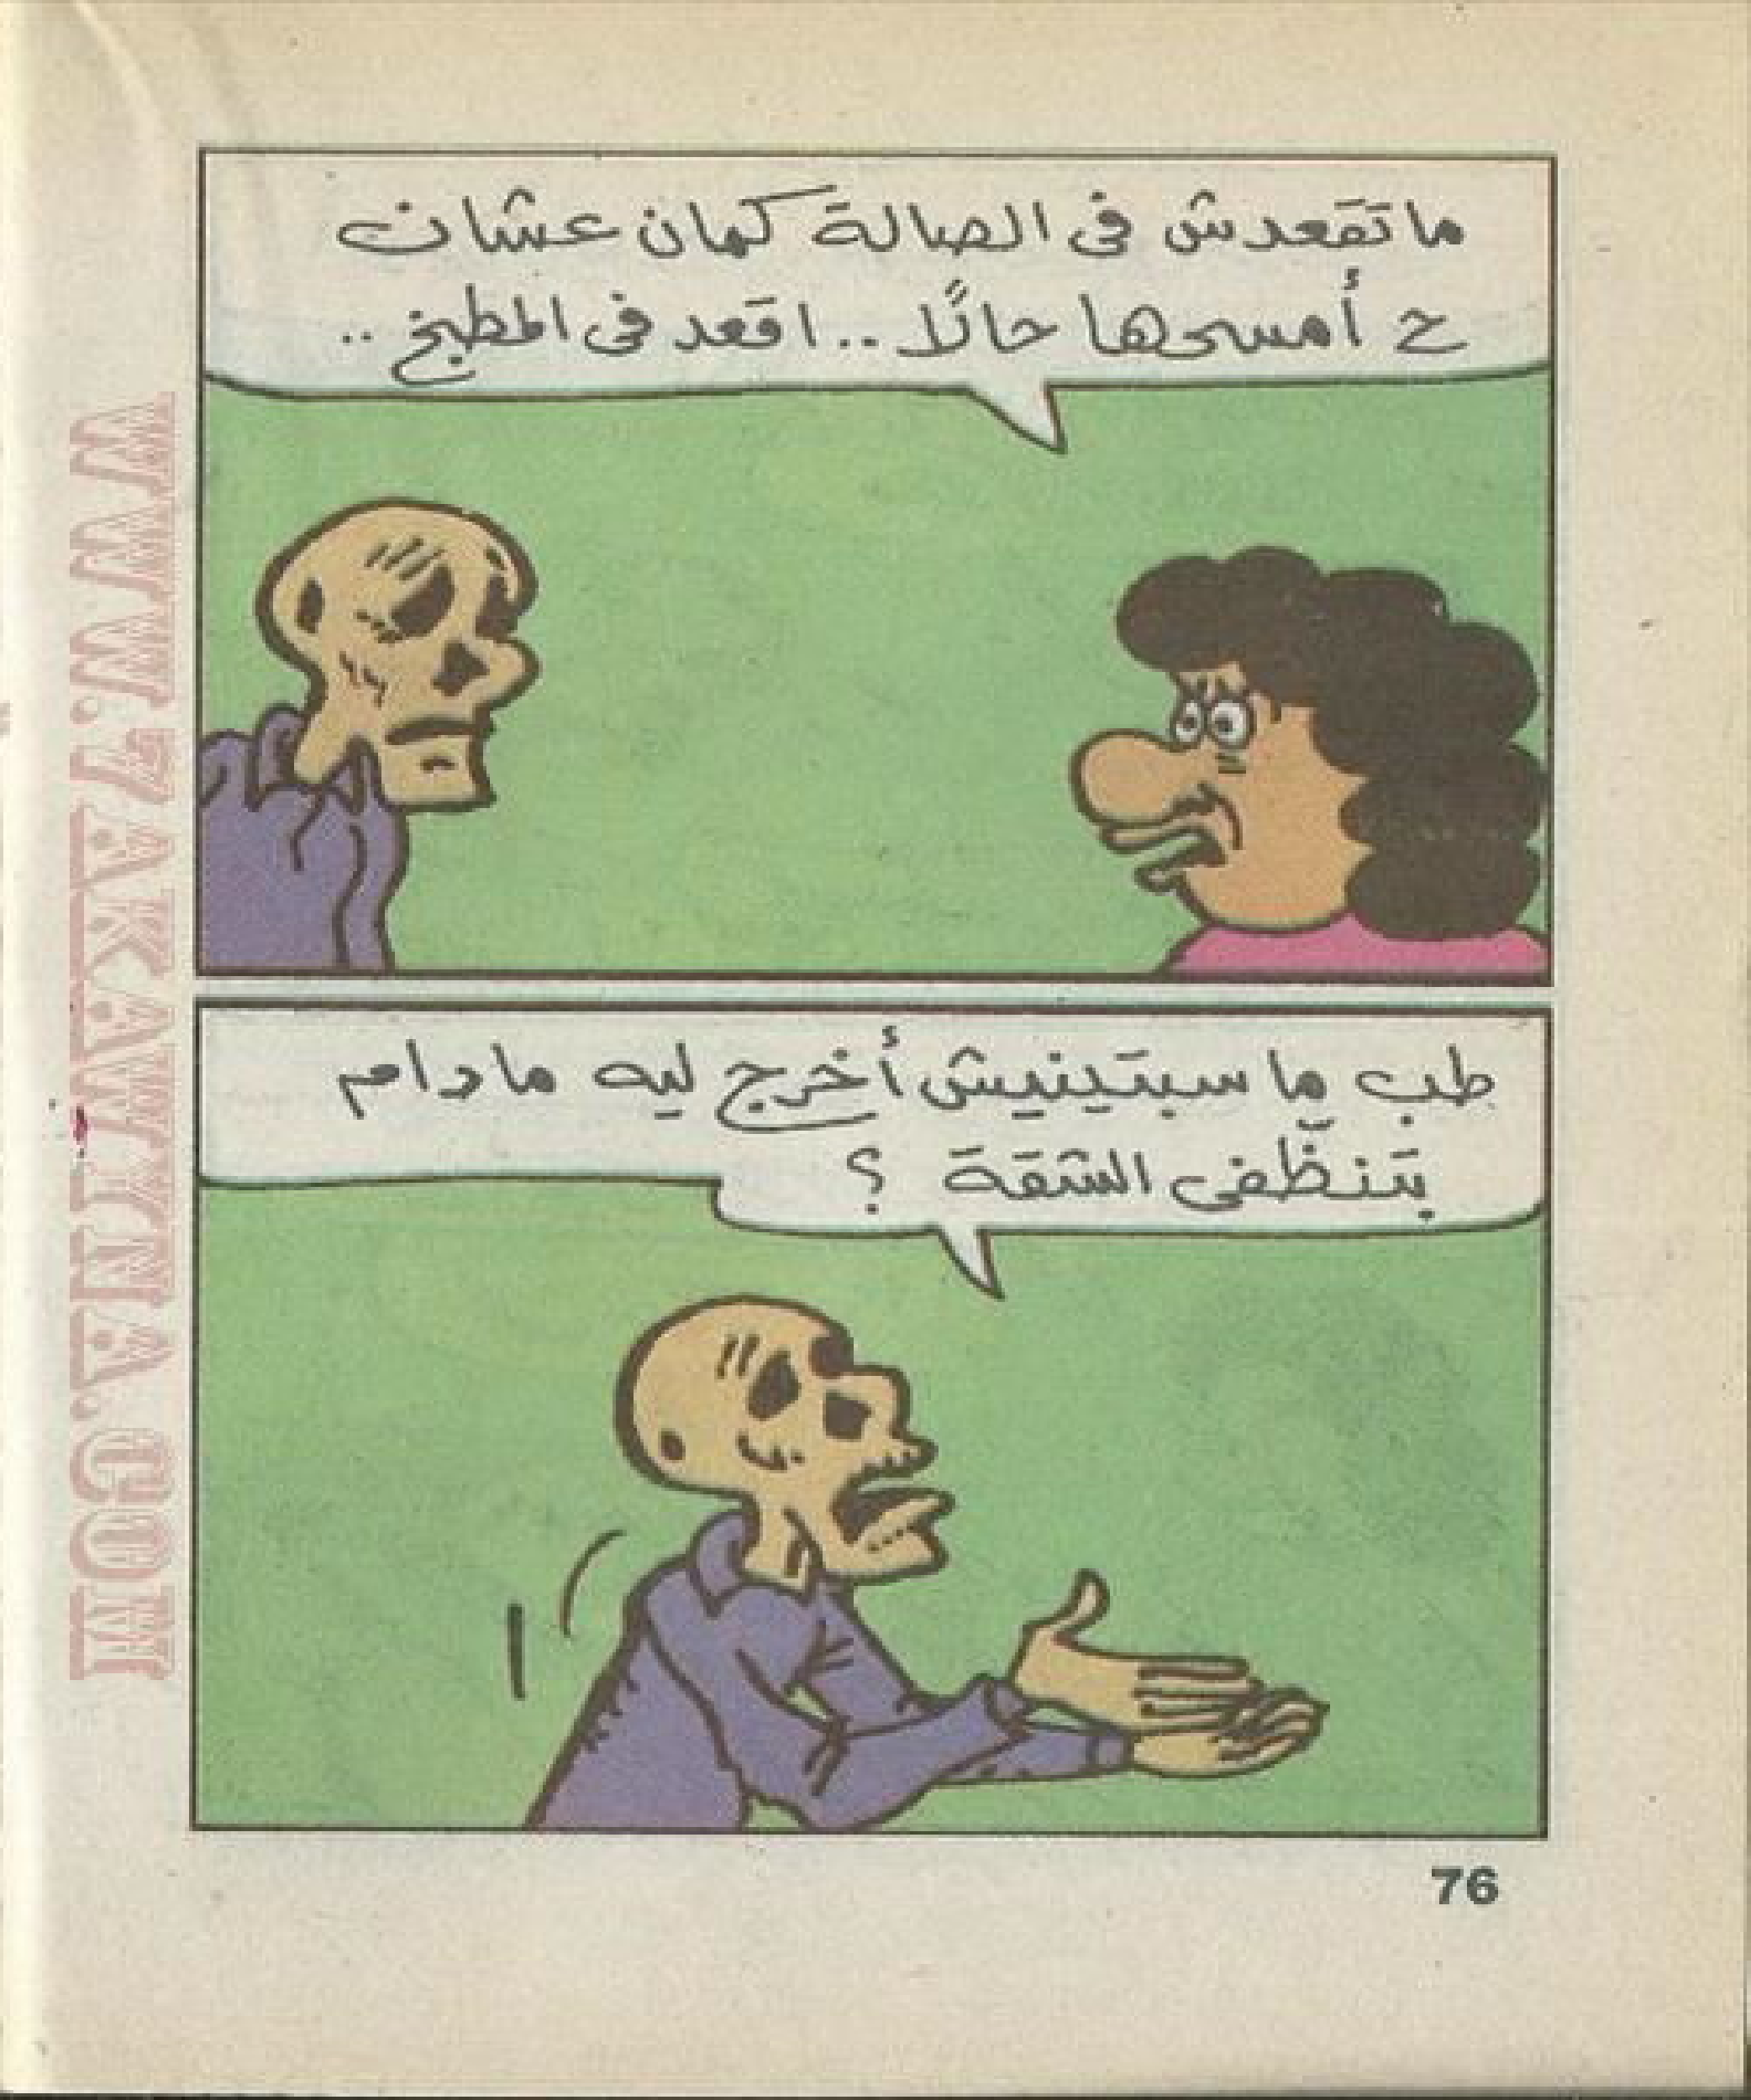 ما تقعدش فى الصالة كمان عشان
ح أمسحها حالًا .. اقعد فى المطبخ ..
طب ما سبتينيش أخرج ليه مادام
بتنظَّفى الشقة ؟
76
WWW.7AKAWITNA.COM